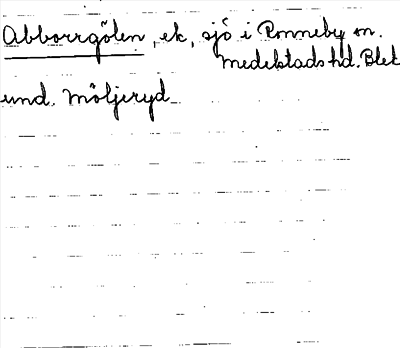 Abborrgölen, ek, sjö i Ronneby sn.
Medelstads hd. Blek
und. Möljeryd